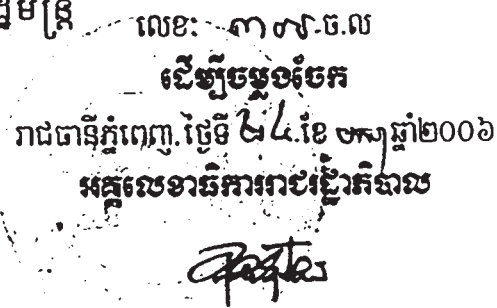 លេខៈ ៣៧.ច.ល
ដើម្បីចម្លងចែក
រាជធានីភ្នំពេញ.ថ្ងៃទី ២៤.ខែ ឆ្នាំ២០០៦
អគ្គលេខាធិការរាជរដ្ឋាភិបាល